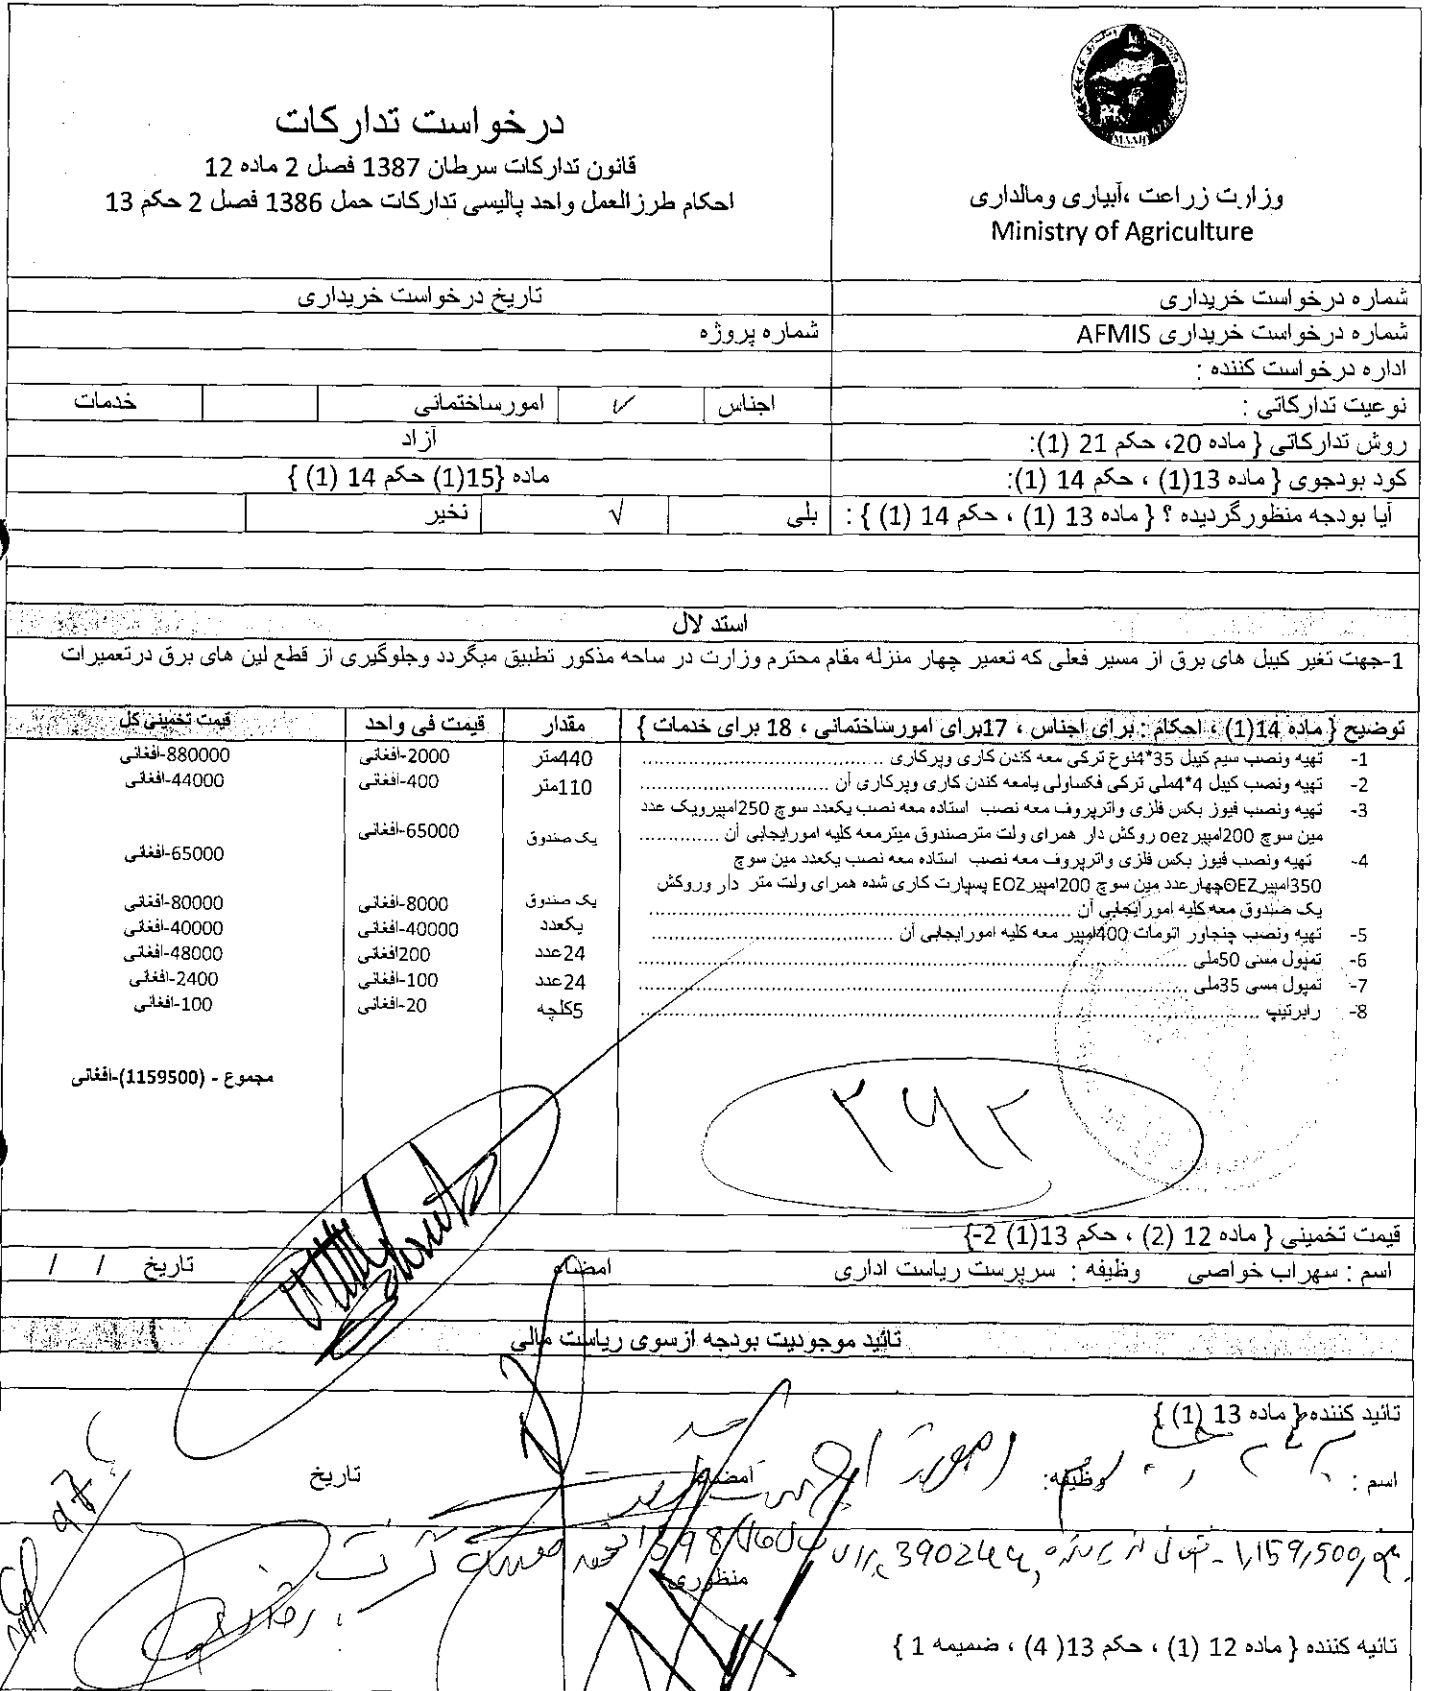 وزارت زراعت ،آبیاری ومالداری
Ministry of Agriculture
درخواست تدارکات
قانون تدارکات سرطان 1387 فصل 2 ماده 12
احکام طرزالعمل واحد پالیسی تدارکات حمل 1386 فصل 2 حکم 13
شماره درخواست خریداری تاریخ درخواست خریداری
شماره درخواست خریداری AFMIS شماره پروژه
اداره درخواست کننده :
نوعیت تدارکاتی : اجناس ✓ امورساختمانی خدمات
روش تدارکاتی { ماده 20، حکم 21 (1): آزاد
کود بودجوی { ماده 13(1) ، حکم 14 (1): ماده {15(1) حکم 14 (1) }
آیا بودجه منظورگردیده ؟ { ماده 13 (1) ، حکم 14 (1) } : بلی √ نخیر
استد لال
1-جهت تغیر کیبل های برق از مسیر فعلی که تعمیر چهار منزله مقام محترم وزارت در ساحه مذکور تطبیق میگردد وجلوگیری از قطع لین های برق درتعمیرات
توضیح { ماده 14(1) ، احکام : برای اجناس ، 17برای امورساختمانی ، 18 برای خدمات } مقدار قیمت فی واحد قیمت تخمینی کل
1- تهیه ونصب سیم کیبل 35*4نوع ترکی معه کندن کاری وپرکاری 440متر 2000-افغانی 880000-افغانی
2- تهیه ونصب کیبل 4*4ملی ترکی فکساولی بامعه کندن کاری وپرکاری آن 110متر 400-افغانی 44000-افغانی
3- تهیه ونصب فیوز بکس فلزی واترپروف معه نصب استاده معه نصب یکعدد سوچ 250امپیرویک عدد
مین سوچ 200امپیر oez روکش دار همرای ولت مترصندوق میترمعه کلیه امورایجابی آن یک صندوق 65000-افغانی 65000-افغانی
4- تهیه ونصب فیوز بکس فلزی واترپروف معه نصب استاده معه نصب یکعدد مین سوچ
350امپیرOEZچهارعدد مین سوچ 200امپیرEOZ پسپارت کاری شده همرای ولت متر دار وروکش
یک صندوق معه کلیه امورایجابی آن یک صندوق 8000-افغانی 80000-افغانی
5- تهیه ونصب چنجاور اتومات 400امپیر معه کلیه امورایجابی آن یکعدد 40000-افغانی 40000-افغانی
6- تمپول مسی 50ملی 24عدد 200افغانی 48000-افغانی
7- تمپول مسی 35ملی 24عدد 100-افغانی 2400-افغانی
8- رابرتیپ 5کلچه 20-افغانی 100-افغانی
مجموع - (1159500)-افغانی
۲۶۲
قیمت تخمینی { ماده 12 (2) ، حکم 13(1) 2-}
اسم : سهراب خواصی وظیفه : سرپرست ریاست اداری امضاء تاریخ / /
تائید موجودیت بودجه ازسوی ریاست مالی
تائید کننده{ ماده 13 (1) }
اسم : وظیفه: امضاء تاریخ
1,159,500 390244 1398
منظوری
تائیه کننده { ماده 12 (1) ، حکم 13( 4) ، ضمیمه 1 }